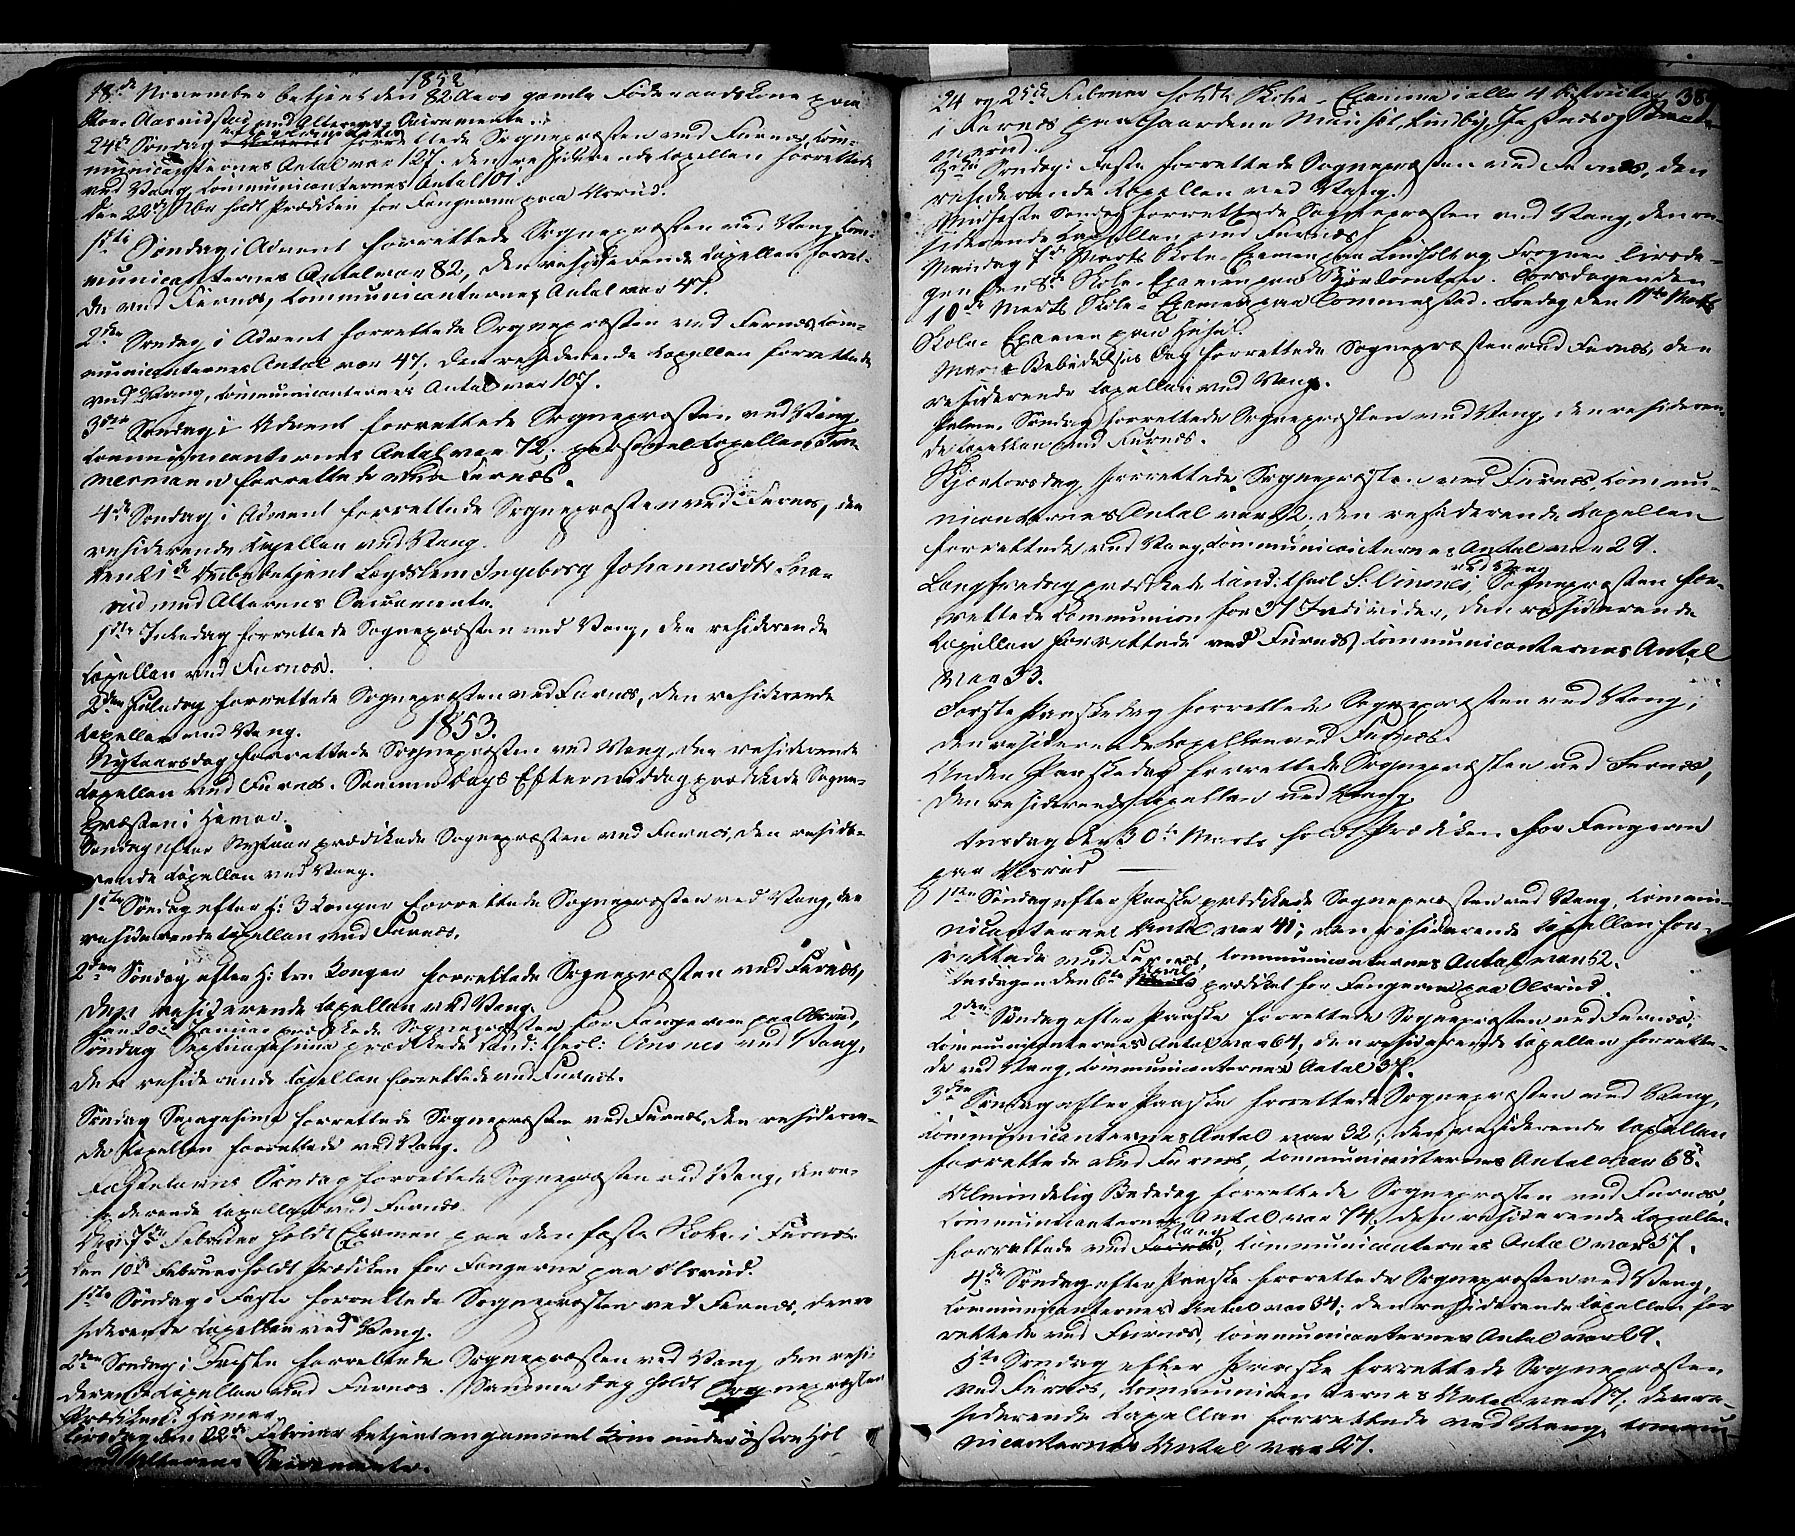 1852
18de November betjent den 82 Aars gamle Föderaadskone paa
Aarvidstad med Alterens Sacramente.
24de Söndag efter Trinitatis forrettede Sognepræsten ved Furnæs, Com-
municanternes Antal var 127. den residerende Capellan forrettede
ved Vang, Communicanternes Antal 101.
den 22de holdt Prædiken for Fangerne paa Olsrud.
1ste Söndag i Advent forrettede Sognepræsten ved Vang, Com-
municanternes Antal var 82, den residerende Capellan forret-
de ved Furnæs, Communicanternes Antal var 47.
2den Söndag i Advent forrettede Sognepræsten ved Furnæs Com-
municanternes Antal var 47, den residerende Capellan forrettede
ved Vang, Communicanternes Antal var 107.
3die Söndag i Advent forrettede Sognepræsten ved Vang
Communicanternes Antal var 72; personel Capellan Tim-
mermann forrettede ved Furnæs.
4de Söndag i Advent forrettede Sognepræsten ved Furnæs, den
residerende Capellan ved Vang.
den 21de betjent Lægdslem Ingeborg Johannesdtr
med Alterens Sacramente.
1ste Juledag forrettede Sognepræsten ved Vang, den residerende
Capellan ved Furnæs.
2den Juledag forrettede Sognepræsten ved Furnæs, den residerende
Capellan ved Vang.
1853.
Nytaarsdag forrettede Sognepræsten ved Vang, den residerende
Capellan ved Furnæs. Samme Dags Eftermiddag prædikede Sogne-
præsten i Hamar.
Söndag efter Nytaar prædikede Sognepræsten ved Furnæs, den reside-
rende Capellan ved Vang.
1ste Söndag efter H: 3 Konger forrettede Sognepræsten ved Vang, den
residerende Capellan ved Furnæs.
2den Söndag efter H: tre Konger forrettede Sognepræsten ved Furnæs,
den residerende Capellan ved Vang.
Januar prædikede Sognepræsten for Fangerne paa Olsrud,
Söndag Septuagesima prædikede Cand: theol: ved Vang,
den residerende Capellan forrettede ved Furnæs.
Söndag Sexagesima forrettede Sognepræsten ved Furnæs, den resideren-
de Capellan forrettede ved Vang.
Fastelavns Söndag forrettede Sognepræsten ved Vang, den re-
siderende Capellan ved Furnæs.
Februar holdt Examen paa den faste Skole i Furnæs.
den 10de Februar holdt Prædiken for Fangerne paa Olsrud.
1ste Söndag i Faste forrettede Sognepræsten ved Furnæs, den re-
siderende Capellan ved Vang.
2den Söndag i Faste forrettede Sognepræsten ved Vang, den resi-
derende Capellan ved Furnæs. Samme Dag holdt Sognepræsten
Prædiken i Hamar.
Tirsdag den 22de Februar betjent en gammel Kone under östre Hol
med Alterens Sacramente.
389
24 og 25de Februar holdt Skole-Examen i alle 4 Districter
i Furnæs paa Gaardene
3die Söndag i Faste forrettede Sognepræsten ved Furnæs, den
residerende Capellan ved Vang.
Midfaste Söndag forrettede Sognepræsten ved Vang, den re-
siderende Capellan ved Furnæs.
Mandag 7de Marts Skole-Examen paa Lindholt og Frogner Tirsda-
gen den 8de Skole-Examen paa Torsdagen den
10de Marts Skole-Examen paa Tommelstad. Fredag den 11te Marts
Skole-Examen paa
Mariæ Bebudelses Dag forrettede Sognepræsten ved Furnæs, den
residerende Capellan ved Vang.
Palme-Söndag forrettede Sognepræsten ved Vang, den resideren-
de Capellan ved Furnæs.
Skjærtorsdag forrettede Sognepræsten ved Furnæs, Commu-
nicanternes Antal var 92. den residerende Capellan
forrettede ved Vang, Communicanternes Antal var 29.
Langfredag prædikede Cand. theol. ved Vang Sognepræsten for-
rettede Communion for 31 Individer, den residerende
Capellan forrettede ved Furnæs, Communicanternes Antal
var 33.
Förste Paaskedag forrettede Sognepræsten ved Vang,
den residerende Capellan ved Furnæs.
Anden Paaskedag forrettede Sognepræsten ved Furnæs,
den residerende Capellan ved Vang.
den 30te Marts holdt Prædiken for Fangerne
paa Olsrud
1ste Söndag efter Paaske prædikede Sognepræsten ved Vang, Commu-
nicanternes Antal var 41; den residerende Capellan for-
rettede ved Furnæs, Communicanternes Antal var 52.
den 6te April prædiket for Fangerne paa Olsrud.
2den Söndag efter Paaske forrettede Sognepræsten ved Furnæs,
Communicanternes Antal var 64; den residerende Capellan forrette-
de ved Vang, Communicanternes Antal 37.
3die Söndag efter Paaske forrettede Sognepræsten ved Vang,
Communicanternes Antal var 32; den residerende Capellan
forrettede ved Furnæs, Communicanternes Antal var 68.
Almindelig Bededag forrettede Sognepræsten ved Furnæs,
Communicanternes Antal var 74; den residerende Capellan
forrettede ved Furnæs Vang, Communicanternes Antal var 57.
4de Söndag efter Paaske forrettede Sognepræsten ved Vang,
Communicanternes Antal var 34; den residerende Capellan for-
rettede ved Furnæs, Communicanternes Antal var 29.
5te Söndag efter Paaske forrettede Sognepræsten
ved Furnæs, Communicanternes Antal var 17; den re-
siderende Capellan forrettede ved Vang, Commu-
nicanternes Antal var 27.